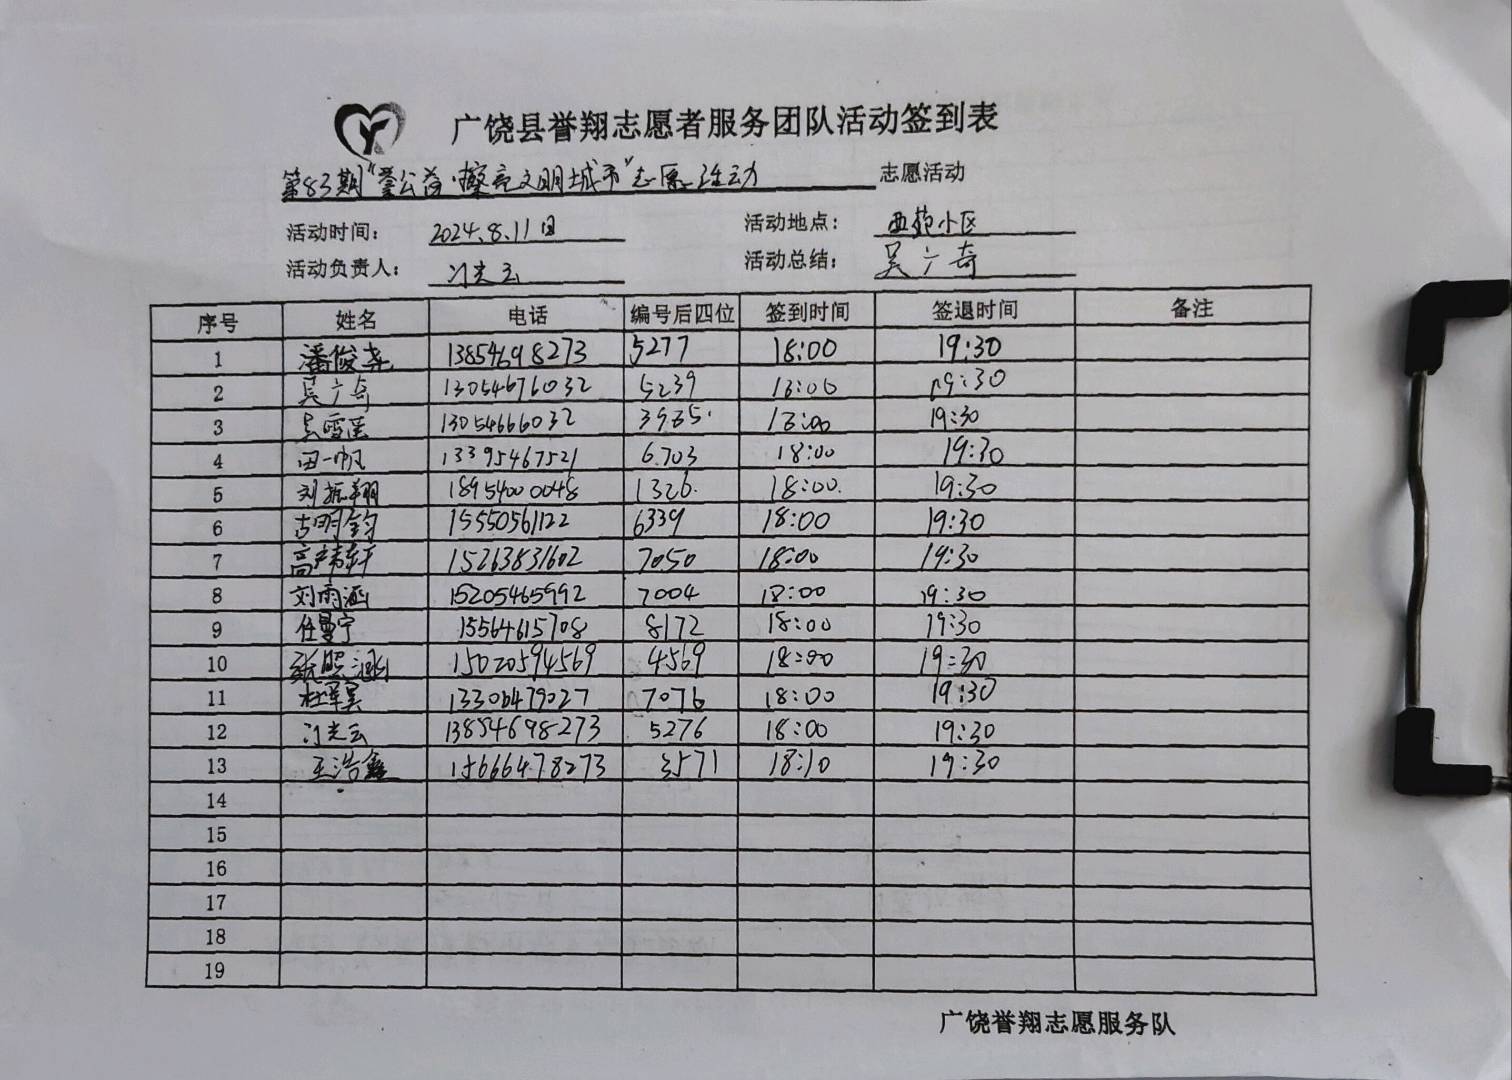 广饶县誉翔志愿者服务团队活动签到表
第83期“誉公益·擦亮文明城市”志愿活动 志愿活动
活动时间： 2024.8.11日 活动地点： 西苑小区
活动负责人： 冯光云 活动总结： 吴广奇
序号 姓名 电话 编号后四位 签到时间 签退时间 备注
1 潘俊尧 13854698273 5277 18:00 19:30
2 吴广奇 13054676032 5239 18:00 19:30
3 吴雪瑶 13054666032 18:00 19:30
4 田一帆 13395467521 6703 18:00 19:30
5 刘振翔 18954000048 1326. 18:00. 19:30
6 古明钧 15550561122 6339 18:00 19:30
7 高韩轩 15263831602 7050 18:00 19:30
8 刘雨涵 15205465992 7004 18:00 19:30
9 任曼宁 15564615708 8172 18:00 19:30
10 张熙涵 15020594569 4569 18:00 19:30
11 杜军昊 13306479027 7076 18:00 19:30
12 冯光云 13854698273 5276 18:00 19:30
13 王浩鑫 15666478273 3571 18:10 19:30
14
15
16
17
18
19
广饶誉翔志愿服务队